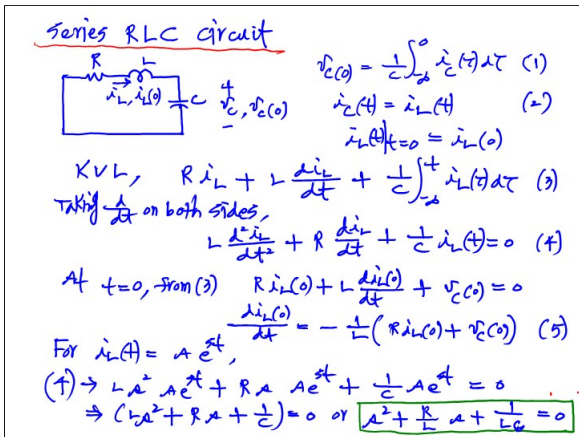 Series RLC circuit
R L
i_L, i_L(0)
C
+
v_C, v_C(0)
−
v_C(0) = 1/C ∫_{-∞}^{0} i_C(τ) dτ (1)
i_C(t) = i_L(t) (2)
i_L(t)|t=0 = i_L(0)
KVL, R i_L + L di_L/dt + 1/C ∫_{-∞}^{t} i_L(τ) dτ (3)
Taking d/dt on both sides,
L d²i_L/dt² + R di_L/dt + 1/C i_L(t) = 0 (4)
At t=0, from (3) R i_L(0) + L di_L(0)/dt + v_C(0) = 0
di_L(0)/dt = − 1/L (R i_L(0) + v_C(0)) (5)
For i_L(t) = A e^{st},
(4) → L s² A e^{st} + R s A e^{st} + 1/C A e^{st} = 0
⇒ (L s² + R s + 1/C) = 0 or s² + R/L s + 1/LC = 0